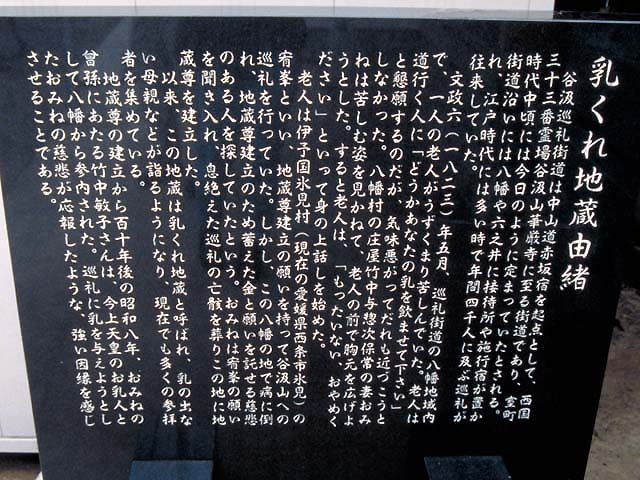 乳くれ地蔵由緒
谷汲巡礼街道は中山道赤坂宿を起点として、西国
三十三番霊場谷汲山華厳寺に至る街道であり、室町
時代中頃には今日のように定まっていたとされる。
街道沿いには八幡や六之井に接待所や施行宿が置か
れ、江戸時代には多い時で年間四千人に及ぶ巡礼が
往来していた。
文政六(一八二三)年五月、巡礼街道の八幡地域内
で、一人の老人がうずくまり苦しんでいた。老人は
道行く人に「どうかあなたの乳を飲ませて下さい」
と懇願するのだが、気味悪がってだれも近づこうと
しなかった。八幡村の庄屋竹中与惣次保常の妻おみ
ねは苦しむ姿を見かねて、老人の前で胸元を広げよ
うとした。すると老人は、「もったいない、おやめく
ださい」といって身の上話しを始めた。
老人は伊予国氷見村(現在の愛媛県西条市氷見)の
宥峯といい、地蔵尊建立の願いを持って谷汲山への
巡礼を行っていた。しかし、この八幡の地で病に倒
れ、地蔵尊建立のため蓄えた金と願いを託せる慈悲
のある人を探していたという。おみねは宥峯の願い
を聞き入れ、息絶えた巡礼の亡骸を葬りこの地に地
蔵尊を建立した。
以来、この地蔵は乳くれ地蔵と呼ばれ、乳の出な
い母親などが詣るようになり、現在でも多くの参拝
者を集めている。
地蔵尊の建立から百十年後の昭和八年、おみねの
曾孫にあたる竹中敏子さんは、今上天皇のお乳人と
して八幡から参内された。巡礼に乳を与えようとし
たおみねの慈悲が応報したような、強い因縁を感じ
させることである。